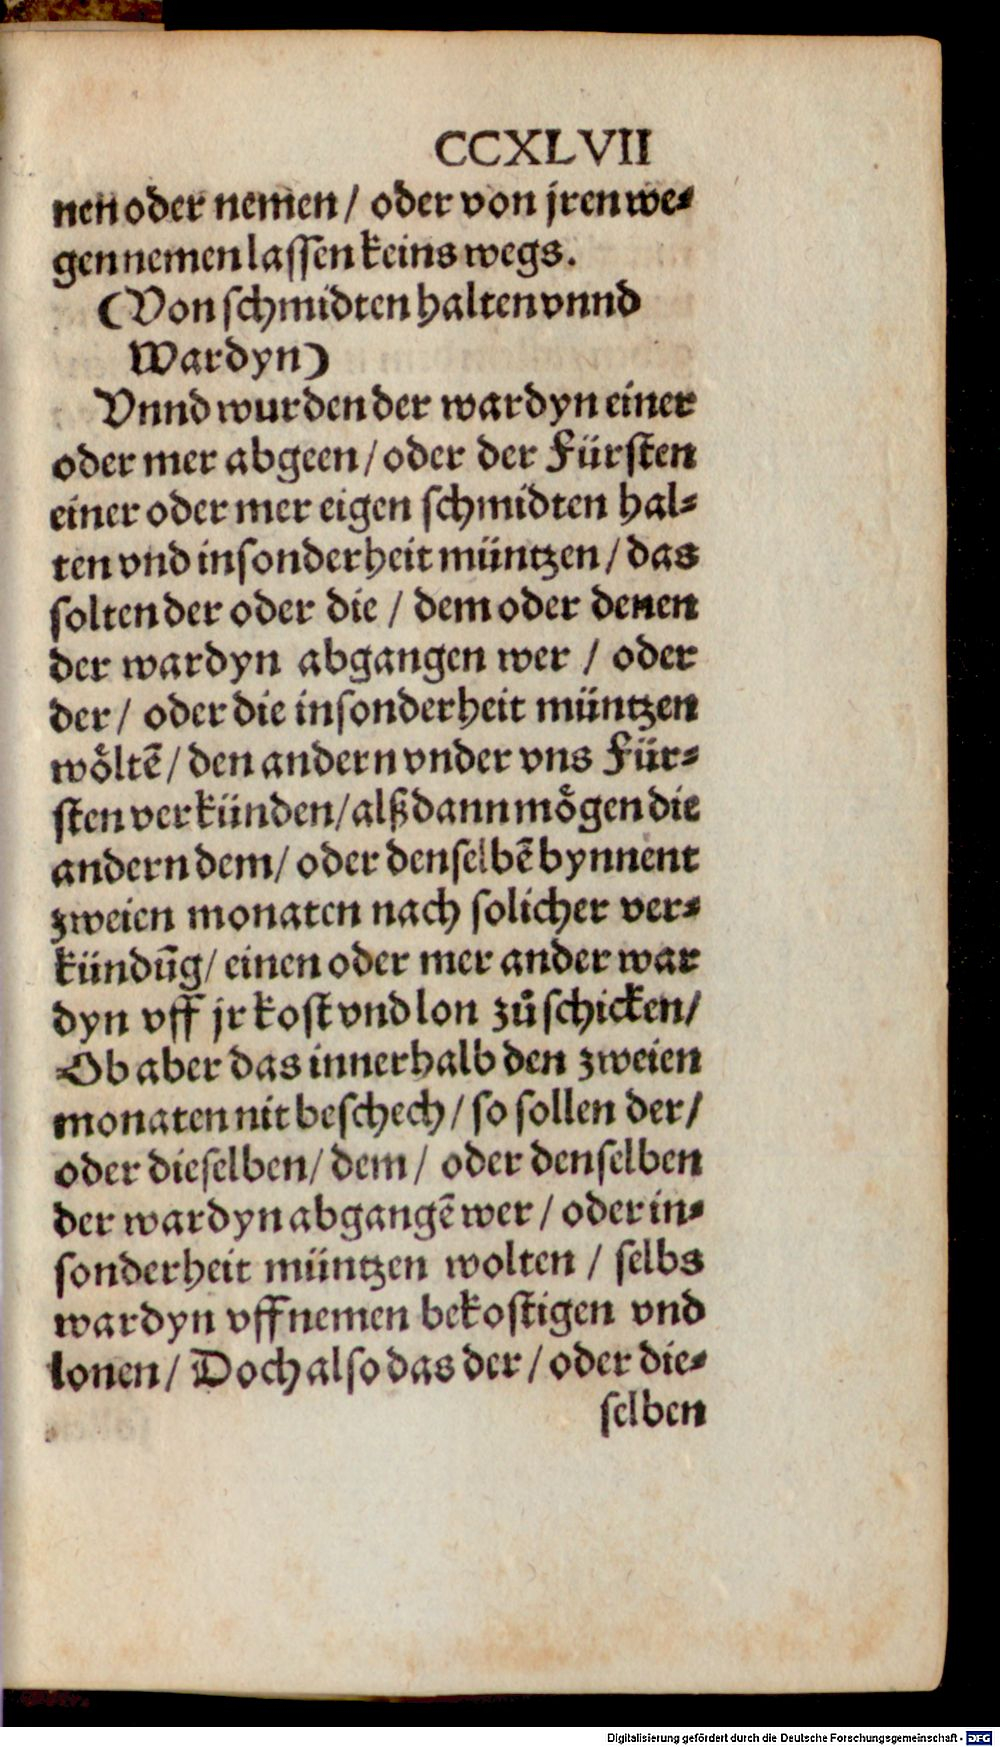 CCXLVII
nen oder nemen / oder von jren we⸗
gen nemen lassen keins wegs.
(Von schmidten halten vnnd
Wardyn)
Vnnd wurden der wardyn einer
oder mer abgeen / oder der Fürsten
einer oder mer eigen schmidten hal⸗
ten vnd insonderheit müntzen / das
solten der oder die / dem oder denen
der wardyn abgangen wer / oder
der / oder die insonderheit müntzen
woͤltē / den andern vnder vns Für⸗
sten verkünden / alßdann moͤgen die
andern dem / oder denselbē bynnent
zweien monaten nach solicher ver⸗
kündūg / einen oder mer ander war
dyn vff jr kost vnd lon zuͦ schicken /
Ob aber das innerhalb den zweien
monaten nit beschech / so sollen der /
oder dieselben / dem / oder denselben
der wardyn abgangē wer / oder in⸗
sonderheit müntzen wolten / selbs
wardyn vffnemen bekostigen vnd
lonen / Doch also das der / oder die⸗
selben
Digitalisierung gefördert durch die Deutsche Forschungsgemeinschaft - DFG